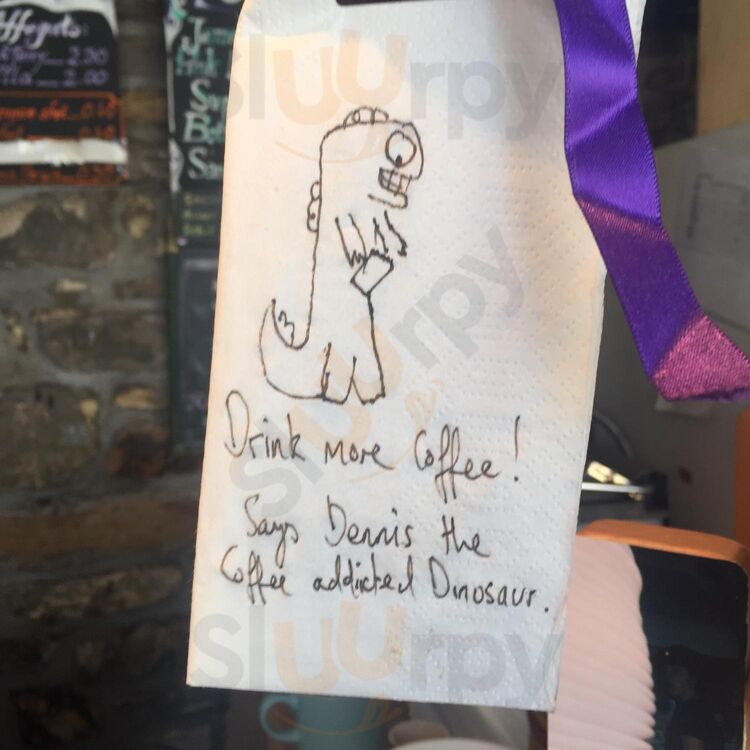 ffogato:
2.30
2.00
Drink more Coffee!
Says Dennis the
Coffee addicted Dinosaur.
sluurpy
sluurpy
sluurpy